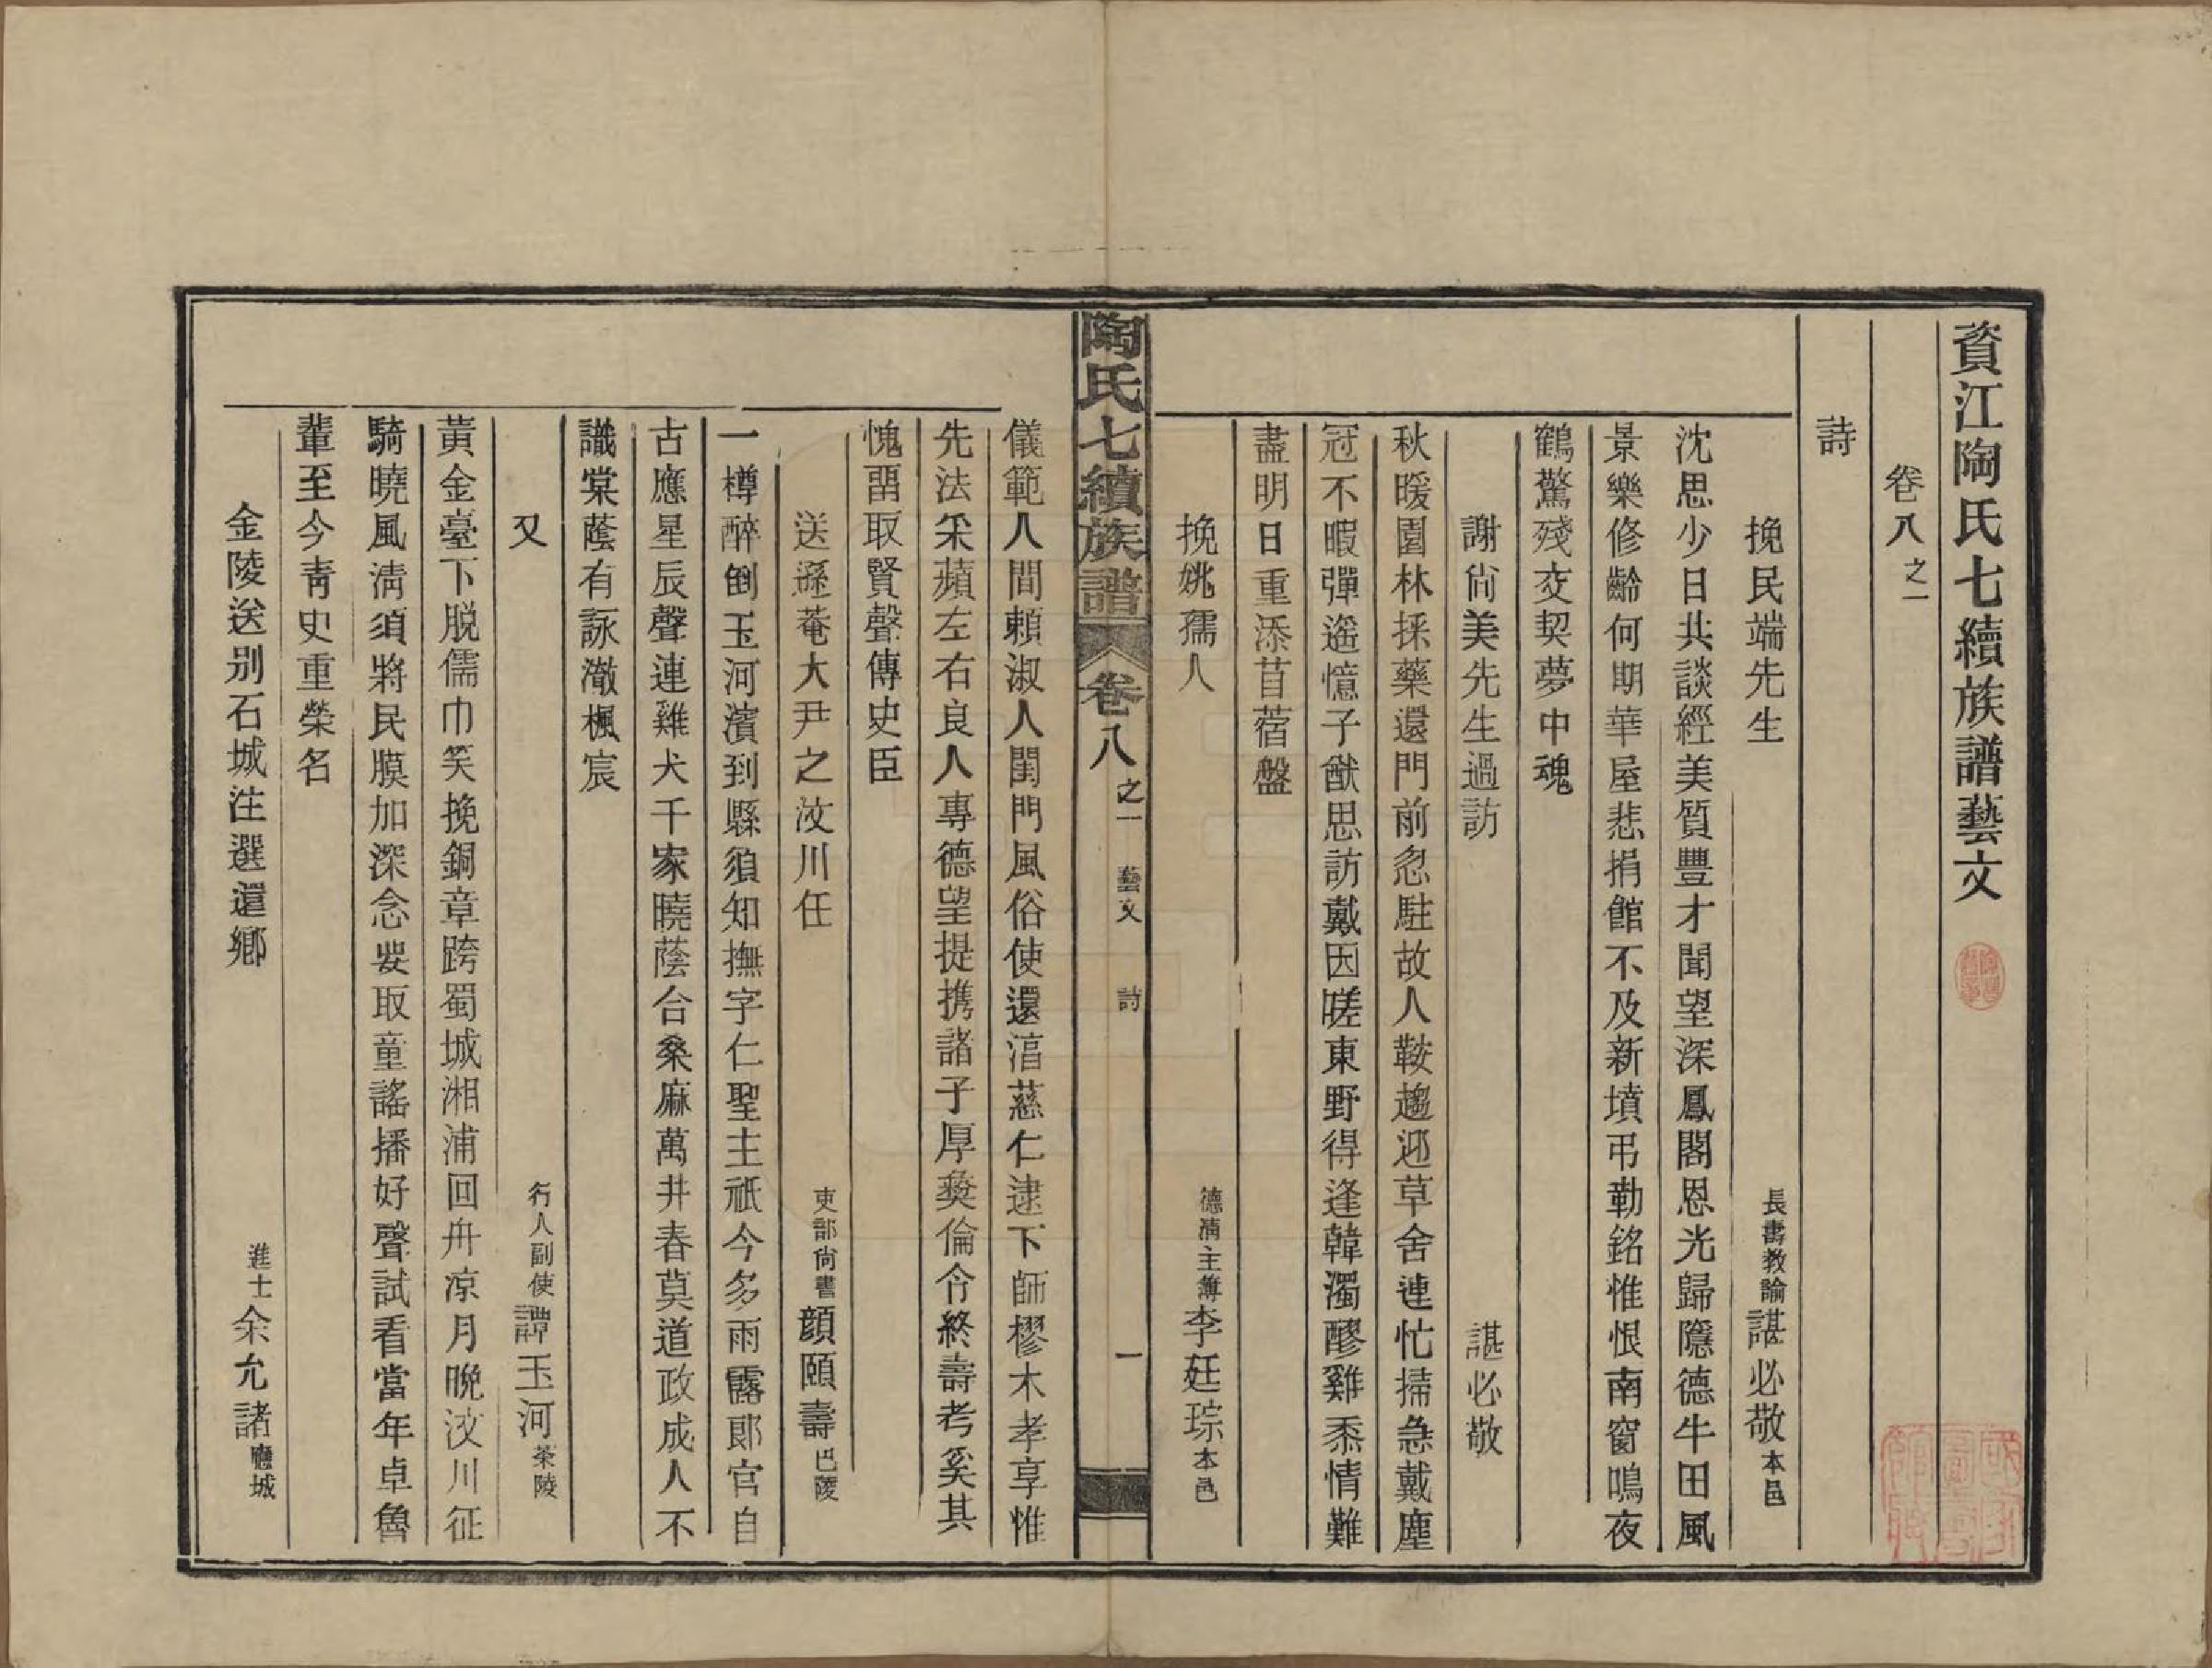 資江陶氏七續族譜藝文
卷八之一
詩
挽民端先生 長壽教諭諶必敬本邑
沈思少日共談經美質豐才聞望深鳳閣恩光歸隱德牛田風
景樂修齡何期華屋悲捐館不及新墳弔勒銘惟恨南窗鳴夜
鶴驚殘交契夢中魂
謝尙美先生過訪 諶必敬
秋暖園林採藥還門前忽駐故人鞍趨迎草舍連忙掃急戴塵
冠不暇彈遥憶子猷思訪戴因嗟東野得逢韓濁醪雞黍情難
盡明日重添苜蓿盤
挽姚孺人 德清主簿李廷琮本邑
陶氏七續族譜 卷八之一 藝文 詩 一
儀範人間賴淑人閨門風俗使還湻慈仁逮下師樛木孝享惟
先法采蘋左右良人專德望提携諸子厚彝倫令終壽考奚其
愧畱取賢聲傳史臣
送遜菴大尹之汶川任 吏部尙書顔頤壽巴陵
一樽醉倒玉河濱到縣須知撫字仁聖主祇今多雨露郎官自
古應星辰聲連雞犬千家曉蔭合桑麻萬井春莫道政成人不
識棠蔭有詠澈楓宸
又 行人副使譚玉河茶陵
黃金臺下脱儒巾笑挽銅章跨蜀城湘浦回舟凉月晩汶川征
騎曉風淸須將民膜加深念要取童謠播好聲試看當年卓魯
輩至今靑史重榮名
金陵送别石城注選還鄉 進士余允諸應城